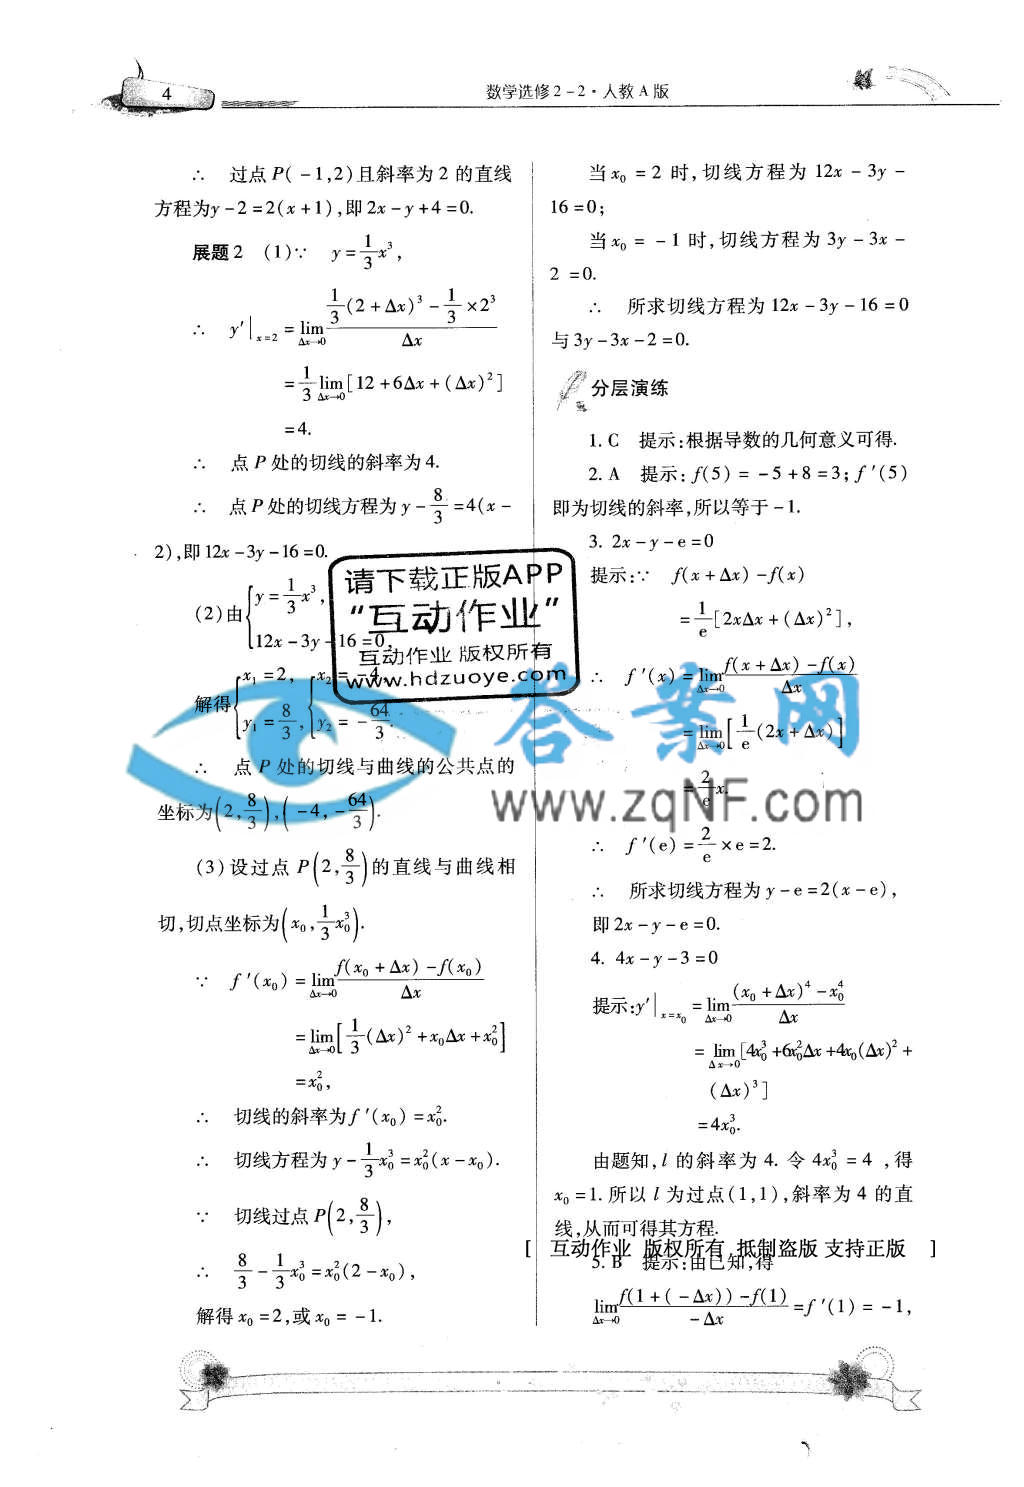 4
数学选修2-2·人教A版
∴ 过点P(-1,2)且斜率为2的直线
方程为y-2=2(x+1),即2x-y+4=0.
展题2 (1)∵ y=1/3x³,
∴ y′|x=2=lim Δx→0 (1/3(2+Δx)³-1/3×2³)/Δx
=1/3 lim Δx→0 [12+6Δx+(Δx)²]
=4.
∴ 点P处的切线的斜率为4.
∴ 点P处的切线方程为y-8/3=4(x-
2),即12x-3y-16=0.
(2)由{y=1/3x³, 12x-3y-16=0,
解得{x₁=2, y₁=8/3, {x₂=-4, y₂=-64/3.
∴ 点P处的切线与曲线的公共点的
坐标为(2,8/3),(-4,-64/3).
(3)设过点P(2,8/3)的直线与曲线相
切,切点坐标为(x₀,1/3x₀³).
∵ f′(x₀)=lim Δx→0 (f(x₀+Δx)-f(x₀))/Δx
=lim Δx→0 [1/3(Δx)²+x₀Δx+x₀²]
=x₀²,
∴ 切线的斜率为f′(x₀)=x₀².
∴ 切线方程为y-1/3x₀³=x₀²(x-x₀).
∵ 切线过点P(2,8/3),
∴ 8/3-1/3x₀³=x₀²(2-x₀),
解得x₀=2,或x₀=-1.
当x₀=2时,切线方程为12x-3y-
16=0;
当x₀=-1时,切线方程为3y-3x-
2=0.
∴ 所求切线方程为12x-3y-16=0
与3y-3x-2=0.
分层演练
1.C 提示:根据导数的几何意义可得.
2.A 提示:f(5)=-5+8=3;f′(5)
即为切线的斜率,所以等于-1.
3. 2x-y-e=0
提示:∵ f(x+Δx)-f(x)
=1/e[2xΔx+(Δx)²],
∴ f′(x)=lim Δx→0 (f(x+Δx)-f(x))/Δx
=lim Δx→0 [1/e(2x+Δx)]
=2/e x.
∴ f′(e)=2/e×e=2.
∴ 所求切线方程为y-e=2(x-e),
即2x-y-e=0.
4. 4x-y-3=0
提示:y′|x=x₀=lim Δx→0 ((x₀+Δx)⁴-x₀⁴)/Δx
=lim Δx→0 [4x₀³+6x₀²Δx+4x₀(Δx)²+
(Δx)³]
=4x₀³.
由题知,l的斜率为4.令4x₀³=4,得
x₀=1.所以l为过点(1,1),斜率为4的直
线,从而可得其方程.
5.B 提示:由已知,得
lim Δx→0 (f(1+(-Δx))-f(1))/-Δx=f′(1)=-1,
请下载正版APP
“互动作业”
互动作业 版权所有
www.hdzuoye.com
答案网
www.zqNF.com
[ 互动作业 版权所有 抵制盗版 支持正版 ]